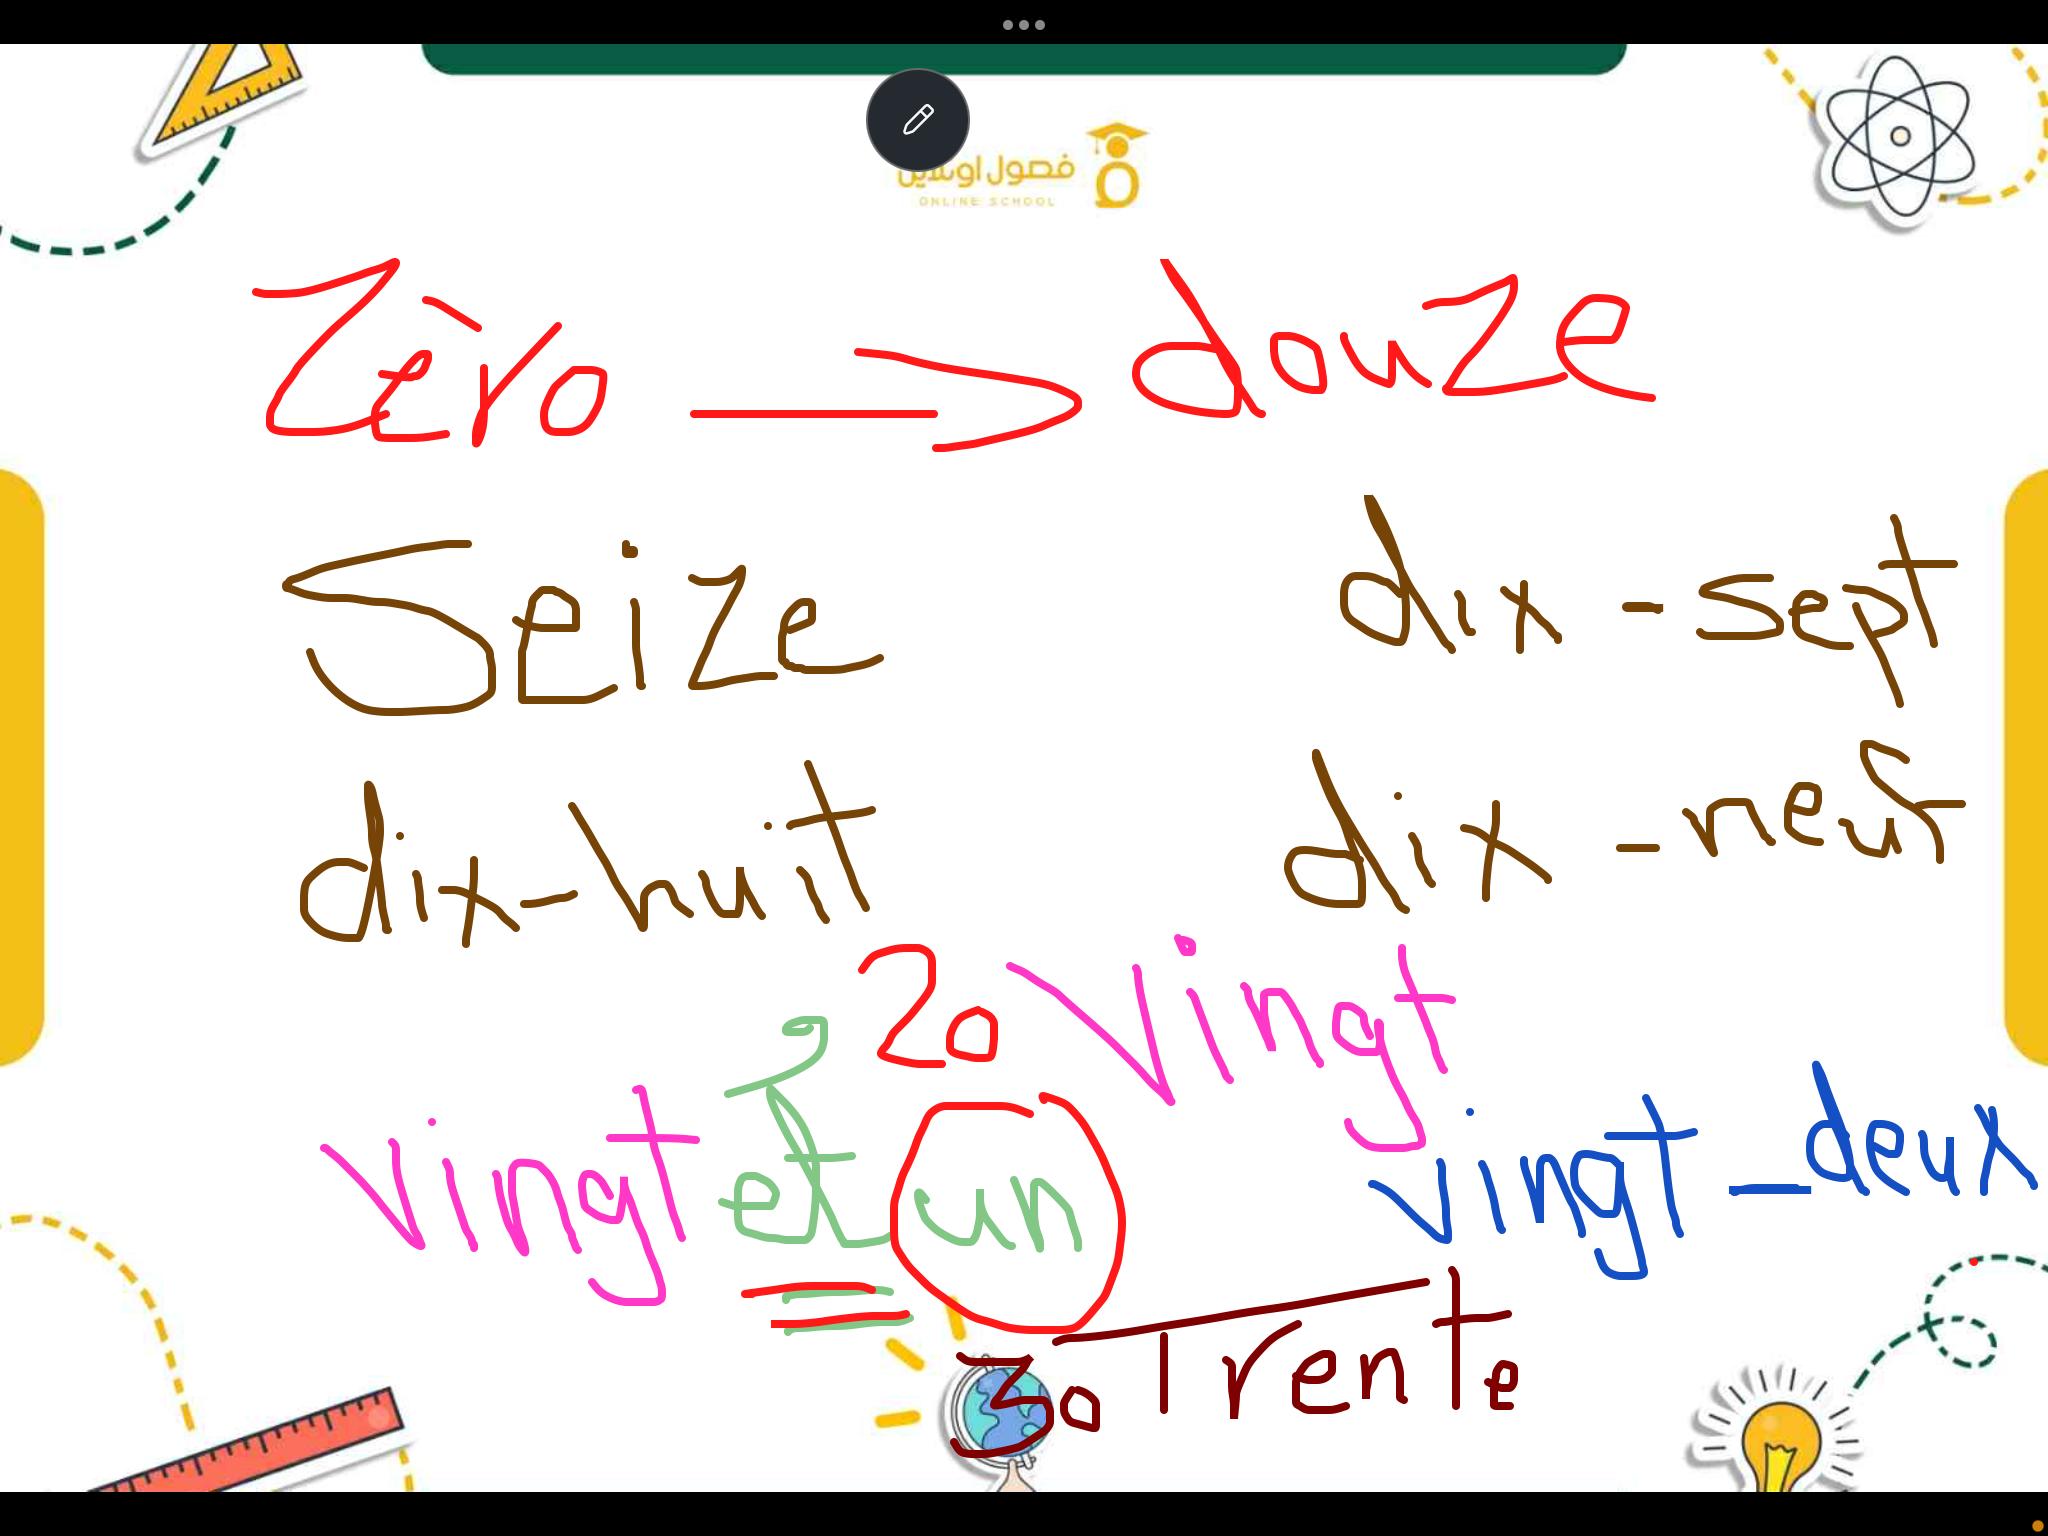 فصول اونلاين
ONLINE SCHOOL
Zèro → douze
Seize dix-sept
dix-huit dix-neuf
20 Vingt
و
vingt et un vingt-deux
30 Trente